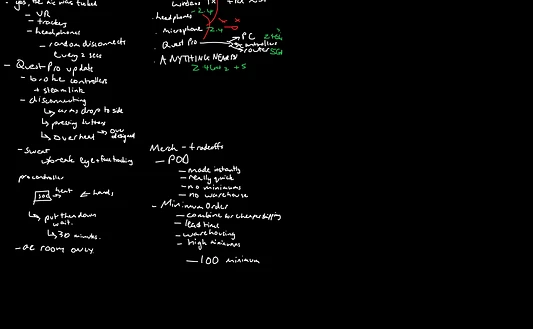 - yes, the nic was
- VR
- trackers
- headphones
- random disconnects
every 2 secs
- Quest Pro update
- broke controllers
+ steamlink
- disconnecting
↳ arms drop to side
↳ pressing buttons
↳ overheat →
- sweat
↳ break eye + face tracking
pro controller
soc heat ← hands
↳ put them down
wait.
↳ 30 minutes.
- ac room only
wireless Tx
· headphones - 2.4
· microphone - 2.4
· Quest Pro
PC 2.4
controllers
router 5G
· ANYTHING NEARBY
2.4GHz + 5
Merch - tradeoffs
- POD
- made instantly
- really quick
- no minimums
- no warehouse
- Minimum Order
- combine for cheaper shipping
- lead time
- warehousing
- high minimums
- 100 minimum